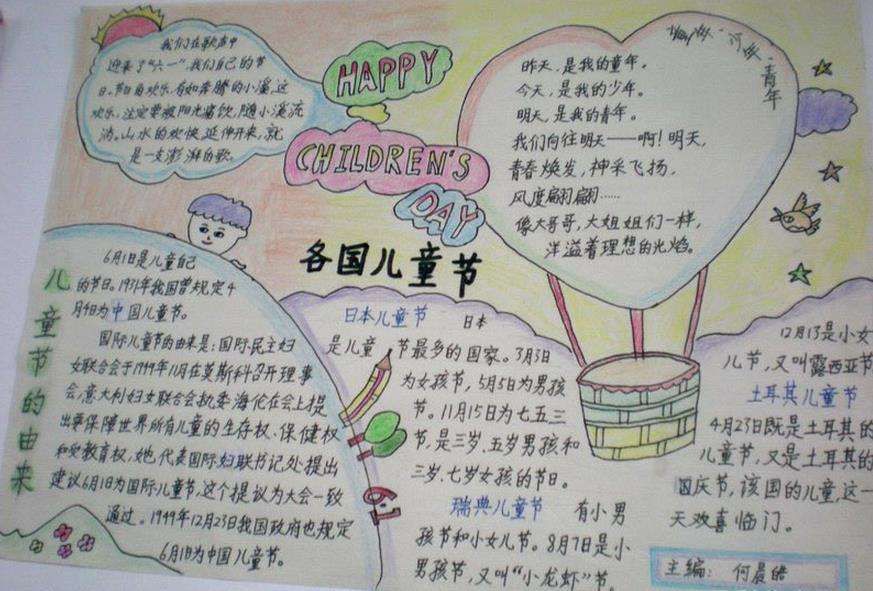 我们在歌声中
迎来了“六一”,我们自己的节
日。节日的欢乐,有如奔腾的小溪,这
欢乐,注定要被阳光痛饮,随小溪流
淌。山水的欢快,延伸开来,就
是一支澎湃的歌。
HAPPY
CHILDREN'S
DAY
童年·少年·青年
昨天,是我的童年。
今天,是我的少年。
明天,是我的青年。
我们向往明天——啊!明天,
青春焕发,神采飞扬,
风度翩翩……
像大哥哥,大姐姐们一样,
洋溢着理想的光焰。
各国儿童节
儿童节的由来
6月1日是儿童自己
的节日。1931年我国曾规定4
月4日为中国儿童节。
国际儿童节的由来是:国际民主妇
女联合会于1949年11月在莫斯科召开理事
会,意大利妇女联合会执委海伦在会上提
出要保障世界所有儿童的生存权、保健权
和受教育权,她代表国际妇联书记处提出
建议6月1日为国际儿童节,这个提议为大会一致
通过。1949年12月23日我国政府也规定
6月1日为中国儿童节。
61
日本儿童节 日本
是儿童节最多的国家。3月3日
为女孩节,5月5日为男孩
节。11月15日为七五三
节,是三岁、五岁男孩和
三岁、七岁女孩的节日。
瑞典儿童节 有小男
孩节和小女儿节。8月7日是小
男孩节,又叫“小龙虾”节。
12月13是小女
儿节,又叫露西亚节
土耳其儿童节
4月23日既是土耳其的
儿童节,又是土耳其的
国庆节,该国的儿童,这一
天欢喜临门。
主编: 何晨皓